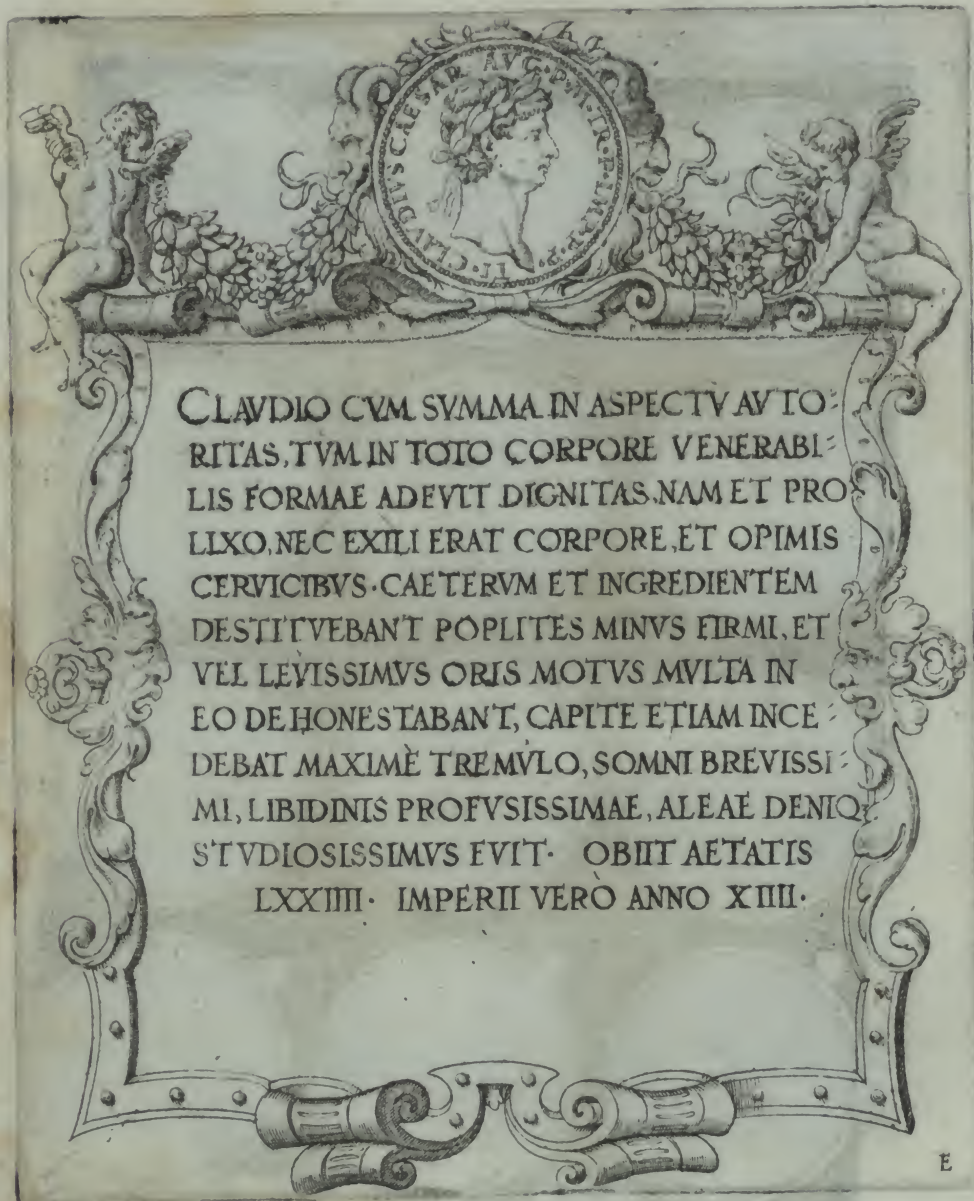 TI·CLAVDIVS CAESAR AVG·P·M·TR·P·IMP·P·P
CLAVDIO CVM SVMMA IN ASPECTV AVTO:
RITAS, TVM IN TOTO CORPORE VENERABI:
LIS FORMAE ADFVIT DIGNITAS. NAM ET PRO
LIXO, NEC EXILI ERAT CORPORE, ET OPIMIS
CERVICIBVS· CAETERVM ET INGREDIENTEM
DESTITVEBANT POPLITES MINVS FIRMI, ET
VEL LEVISSIMVS ORIS MOTVS MVLTA IN
EO DEHONESTABANT, CAPITE ETIAM INCE:
DEBAT MAXIMÈ TREMVLO, SOMNI BREVISSI:
MI, LIBIDINIS PROFVSISSIMAE, ALEAE DENIQ;
STVDIOSISSIMVS FVIT· OBIIT AETATIS
LXXIIII· IMPERII VERÒ ANNO XIIII·
E